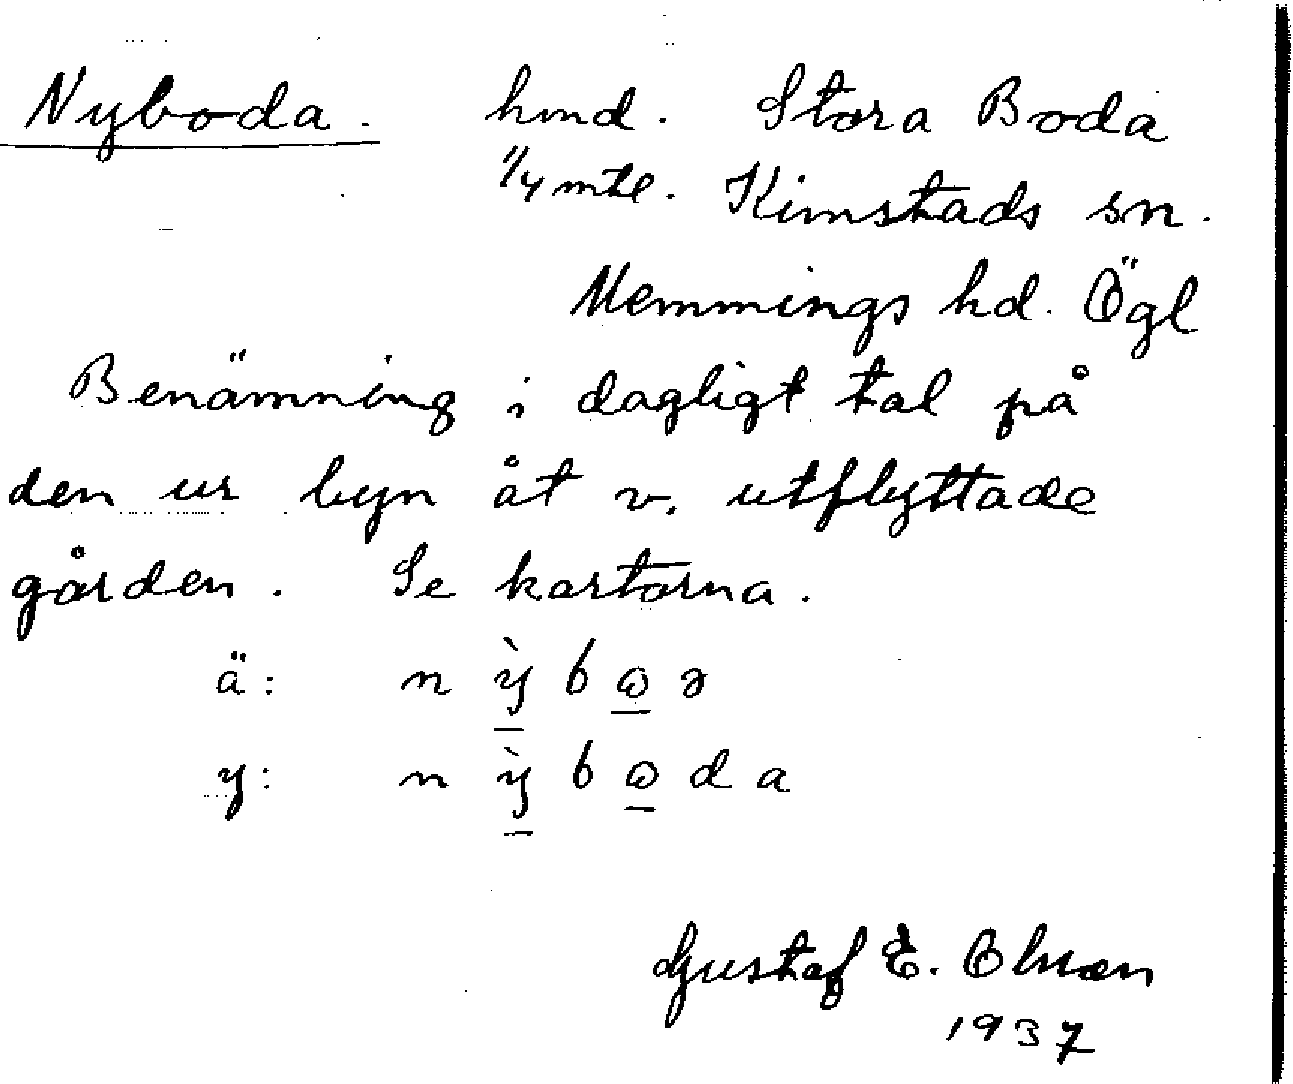 Nyboda. hmd. Stora Boda
1/4 mtl. Kimstads sn.
Memmings hd. Ögl
Benämning i dagligt tal på
den ur byn åt v. utflyttade
gården. Se kartorna.
ä: n ỳ̠ b ω̠ ə
y: n ỳ̠ b ω̠ d a
Gustaf E. Olsson
1937